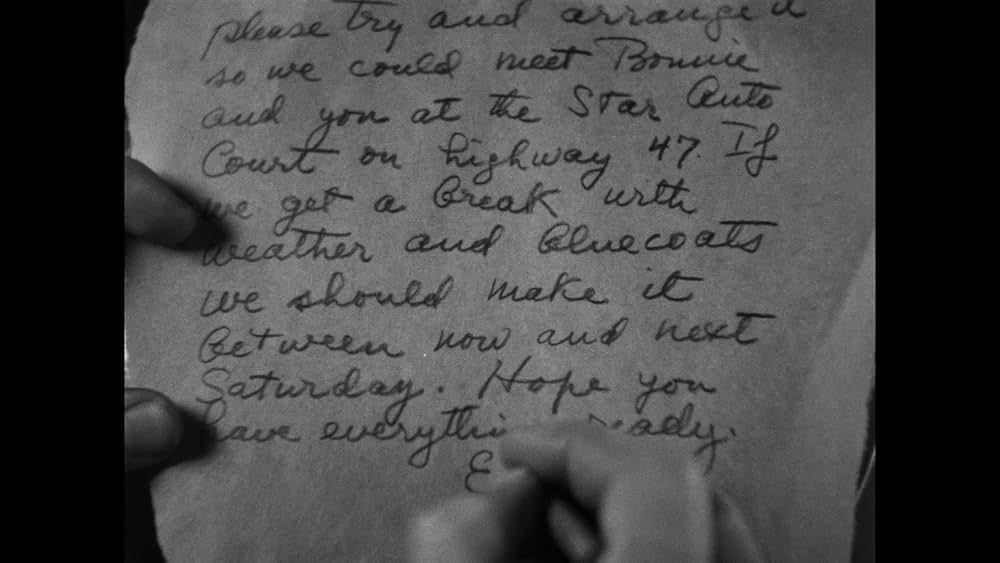 please try and arrange it
so we could meet Bonnie
and you at the Star Auto
Court on highway 47. If
we get a break with
weather and bluecoats
we should make it
between now and next
Saturday. Hope you
have everything ready.
E